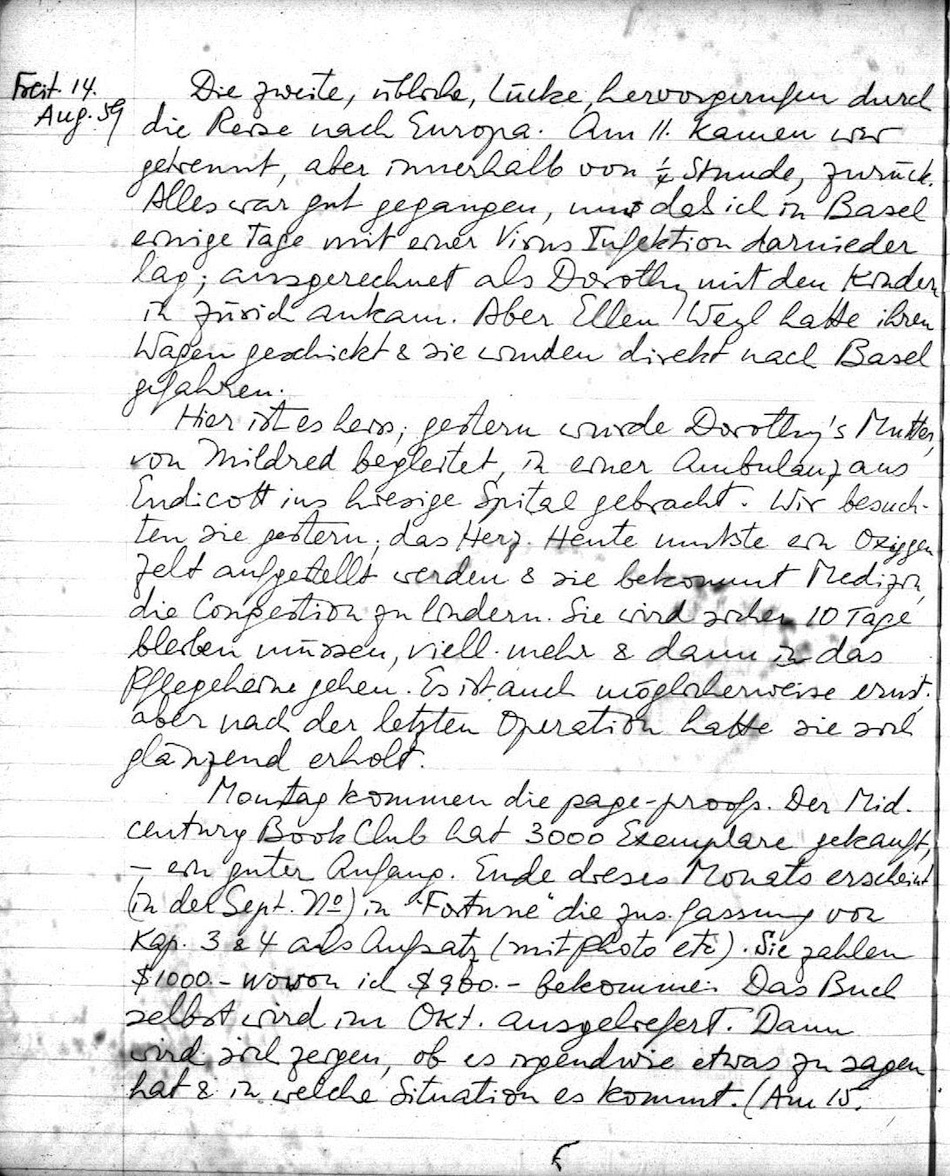 Freit. 14.
Aug. 59
Die zweite, übliche, Lücke, hervorgerufen durch
die Reise nach Europa. Am 11. kamen wir
getrennt, aber innerhalb von ½ Stunde, zurück.
Alles war gut gegangen, nur daß ich in Basel
einige Tage mit einer Virus Infektion darnieder
lag; ausgerechnet als Dorothy mit den Kindern
in Zürich ankam. Aber Ellen Weyl hatte ihren
Wagen geschickt & sie wurden direkt nach Basel
gefahren.
Hier ist es heiss; gestern wurde Dorothy's Mutter,
von Mildred begleitet, in einer Ambulanz aus
Endicott ins hiesige Spital gebracht. Wir besuch-
ten sie gestern; das Herz. Heute mußte ein Oxiggen
Zelt aufgestellt werden & sie bekommt Medizin,
die Congestion zu lindern. Sie wird sicher 10 Tage
bleiben müssen, viell. mehr & dann in das
Pflegeheim gehen. Es ist auch möglicherweise ernst.
aber nach der letzten Operation hatte sie sich
glänzend erholt.
Montag kommen die page-proofs. Der Mid-
century Book Club hat 3000 Exemplare gekauft,
– ein guter Anfang. Ende dieses Monats erscheint
(in der Sept. No) in "Fortune" die zus.fassung von
Kap. 3 & 4 als Aufsatz (mit photo etc). Sie zahlen
$1000.- wovon ich $900.- bekomme. Das Buch
selbst wird im Okt. ausgeliefert. Dann
wird sich zeigen, ob es irgendwie etwas zu sagen
hat & in welche Situation es kommt. (Am 15.